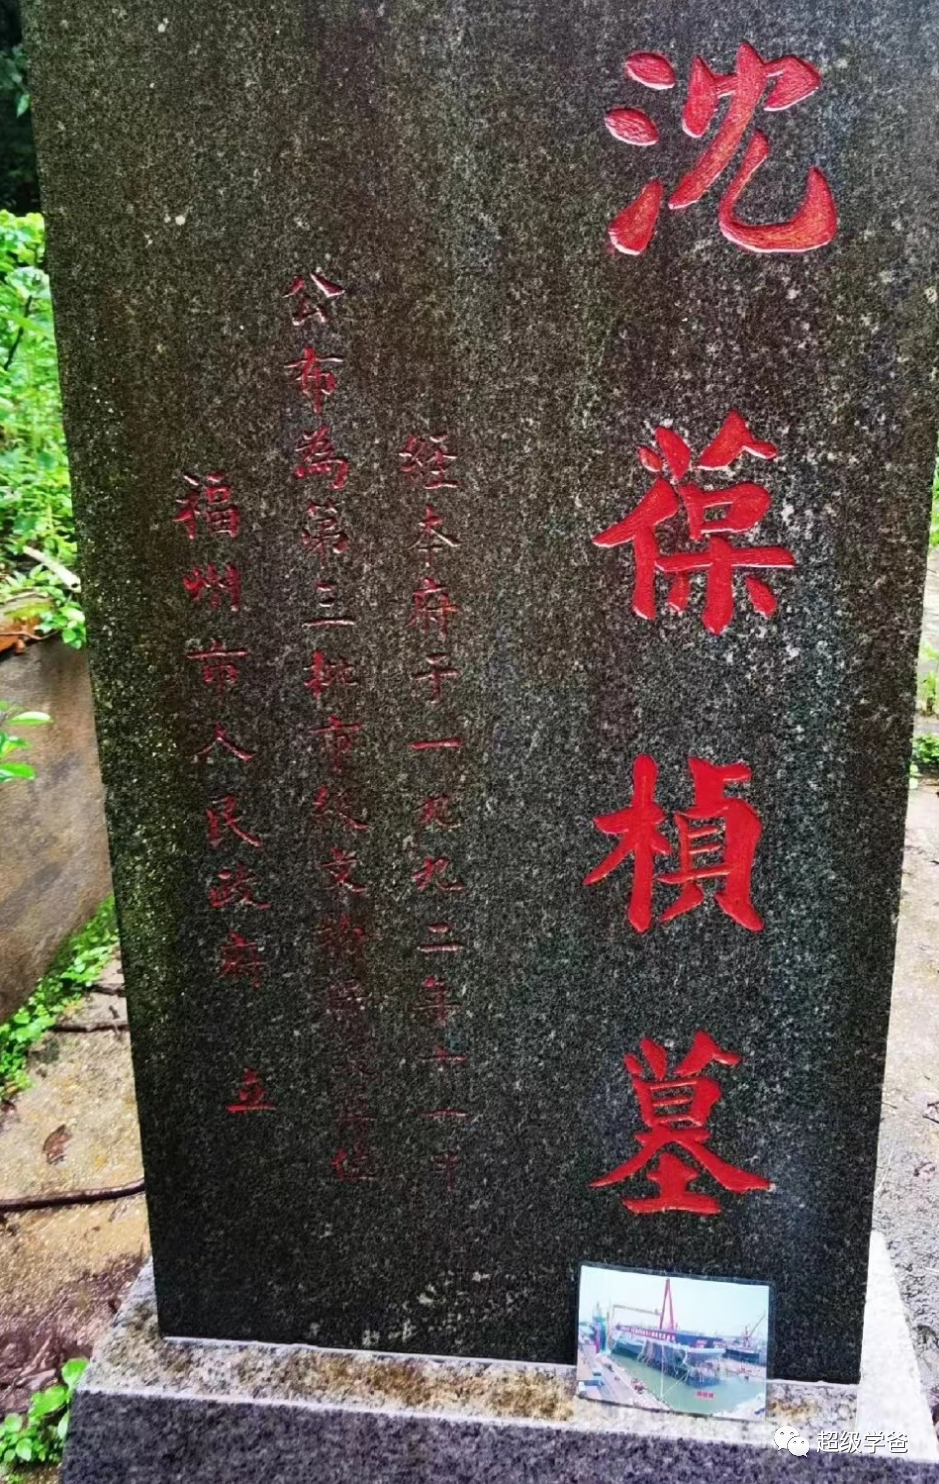 沈葆楨墓
经本府于一九九二年十一月
公布為第三批市级文物保护单位
福州市人民政府 立
超级学爸